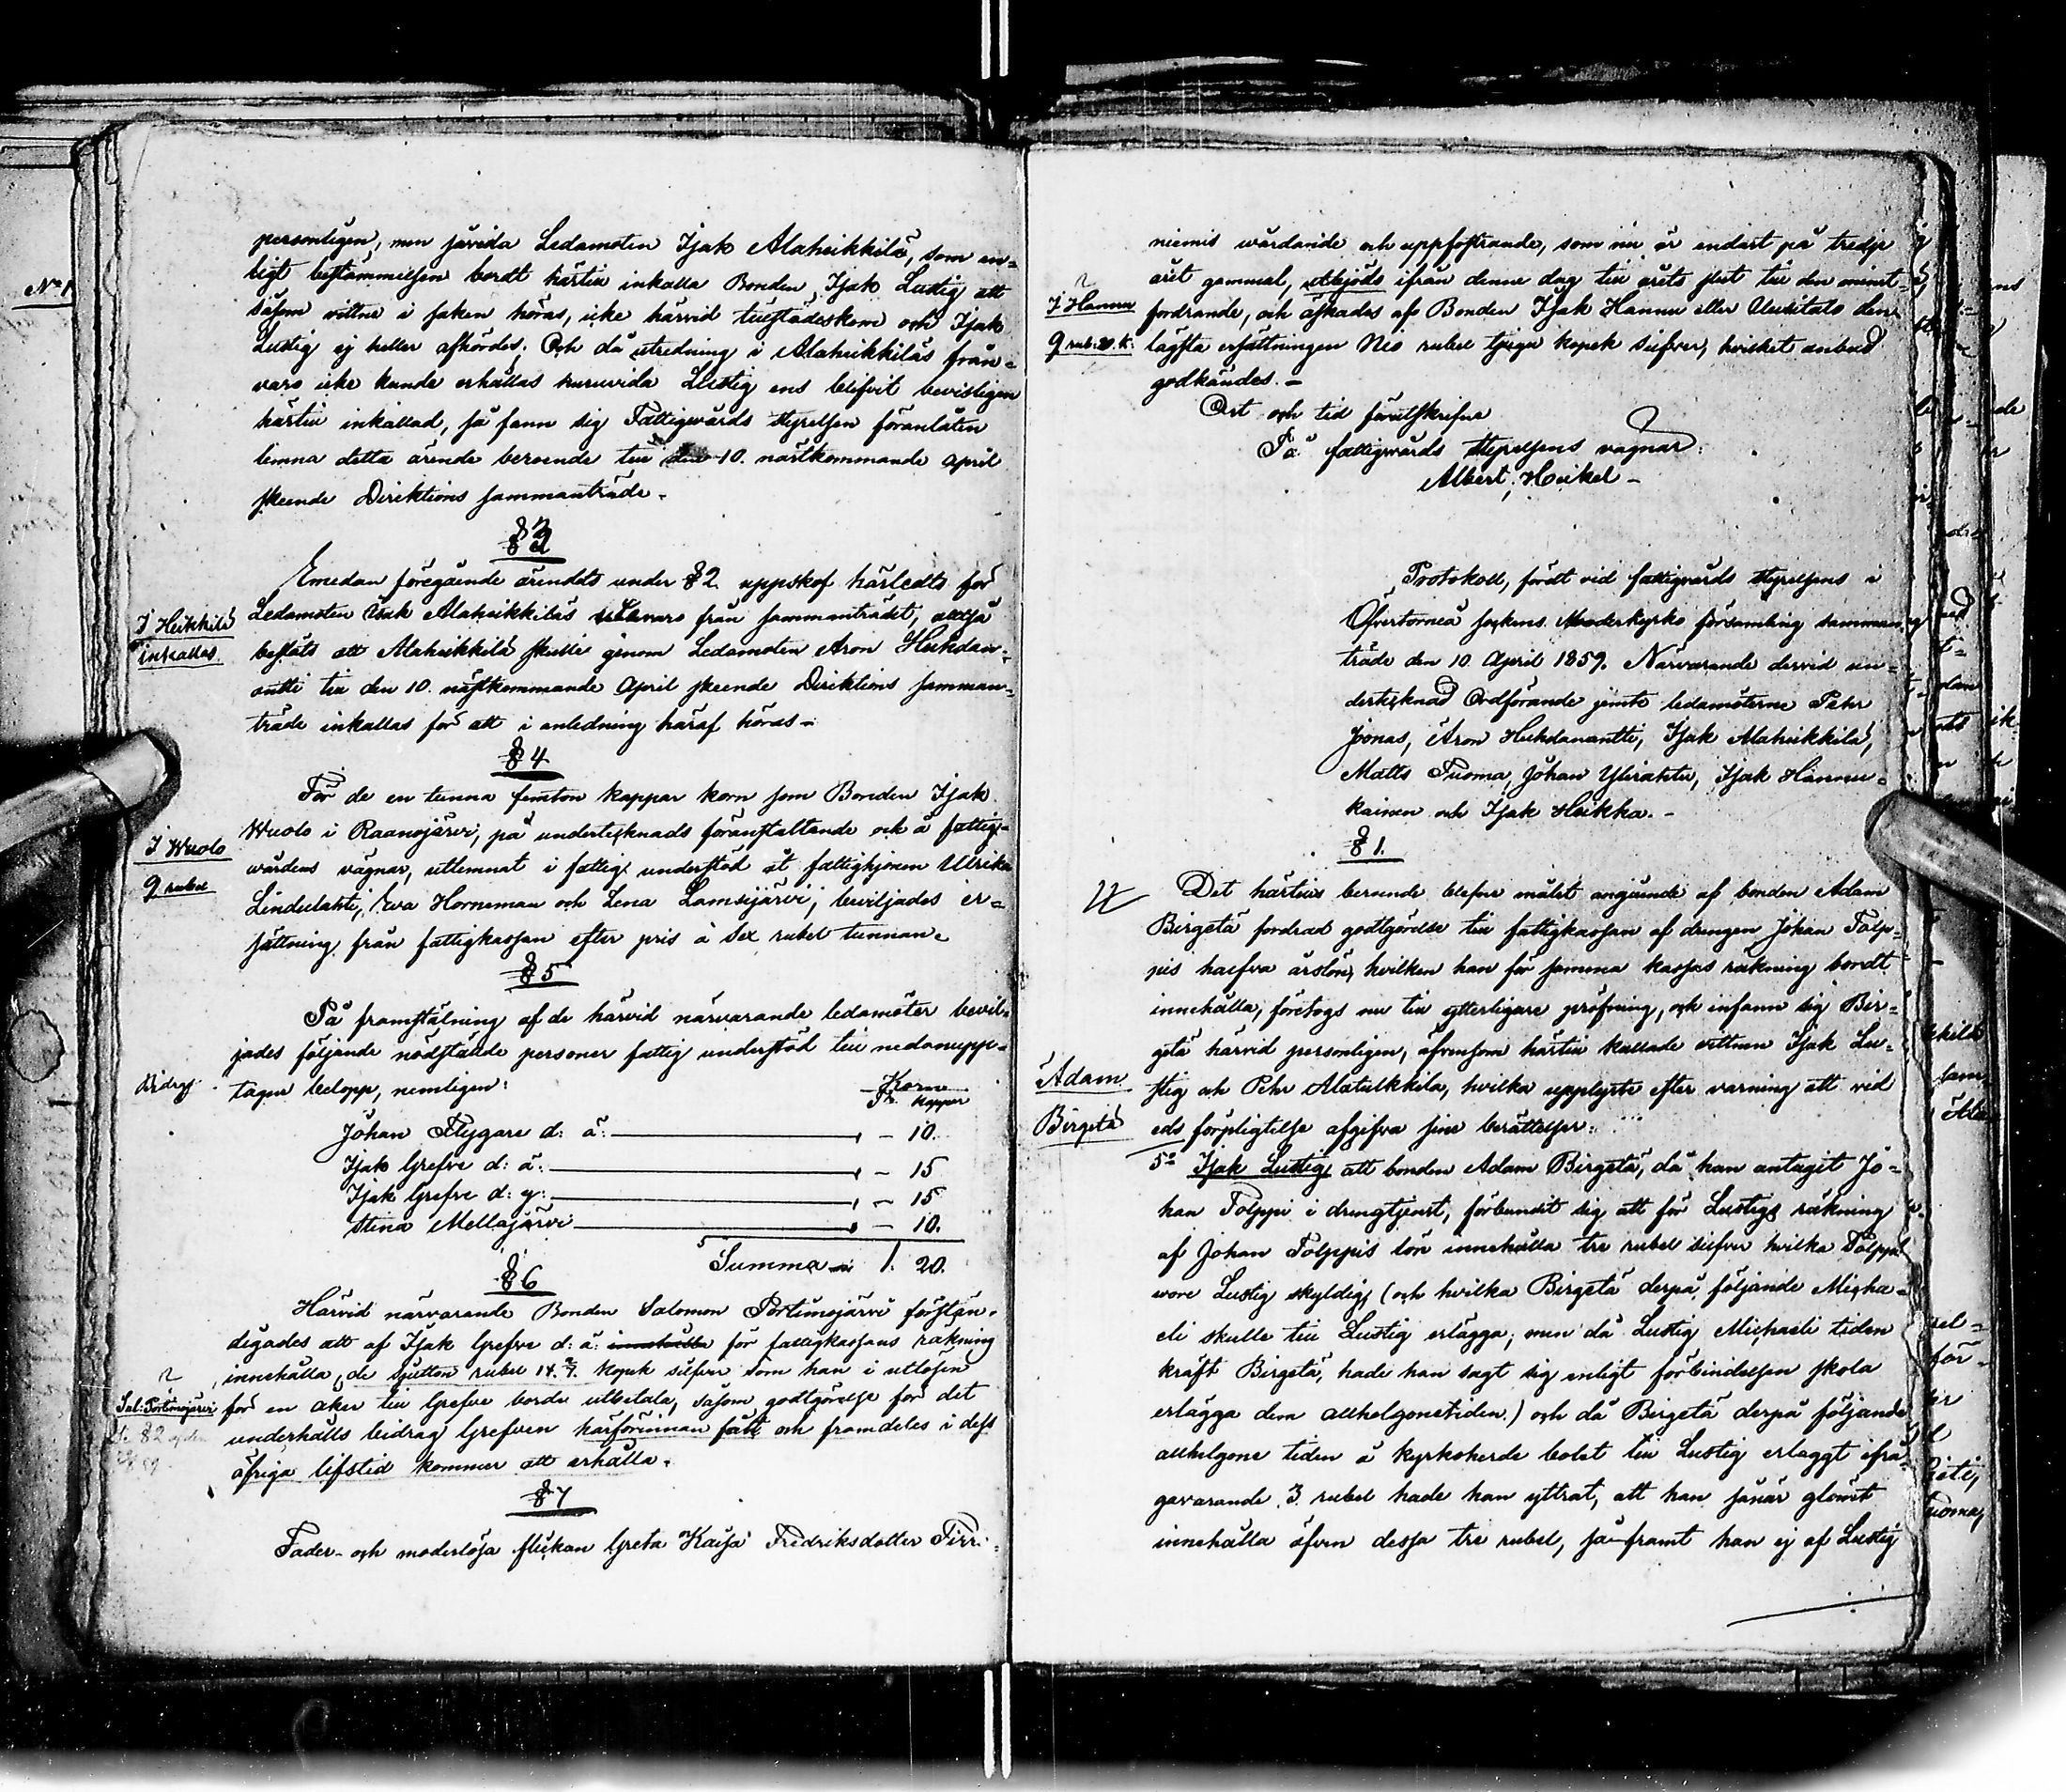 personligen, men såvida Ledamoten Isak Alaheikkilä, som en-
ligt bestämmelsen bordt härtill inkalla Bonden Isak Lustig att
såsom vittne i saken höras, icke härvid tillstädeskom och Isak
Lustig ej heller afhördes. Och då utredning i Alaheikkiläs från-
varo icke kunde erhållas huruvida Lustig ens blifvit bevisligen
härtill inkallad, så fann sig Fattigvårds styrelsen föranlåten
lemna detta ärende beroende till den 10. nästkommande April
skeende Direktions sammanträde.
§ 3
Emedan föregående ärendets under § 2 uppskof härledts för
Ledamoten Isak Alaheikkiläs från sammanträdet, alltså
J Heikkilä
inkallas.
beslöts att Alaheikkilä skulle genom Ledamoten Aron Huhdan-
antti till den 10. nästkommande April skeende Direktions samman-
träde inkallas för att i anledning häraf höras.
§ 4
För de en tunna femton kappar korn som Bonden Isak
J Wuolo
9 rubel
Wuolo i Raanojärvi, på undertecknads föranstaltande och å fattig-
wårdens vägnar, utlemnat i fattig understöd åt fattighjonen Ulrika
Lindelahti, Ewa Horneman och Lena Lamsijärvi, beviljades er-
sättning från fattigkassan efter pris à sex rubel tunnan.
§ 5
På framställning af de härvid närvarande ledamöter bevil-
jades följande nödställde personer fattig understöd till nedanupp-
Bidrag.
tagne belopp, nemligen:
Korn
Tr. kappar
Johan Flygare d: ä: — 10.
Isak Grefve d: ä: — 15
Isak Grefve d: y: — 15
Stina Mellajärvi — 10.
Summa 1. 20.
§ 6
Härvid närvarande Bonden Salomon Portimojärvi förstän-
digades att af Isak Grefve d: ä: innehålla för fattigkassans räkning
innehålla, de sjutton rubel 14. 2/7. kopek silfver som han i utlösen
Sal: Portimojärvi
för en åker till Grefve borde utbetala, såsom godtgörelse för det
underhålls bidrag Grefven härförinnan fått och framdeles i dess
öfriga lifstid kommer att erhålla.
§ 7
Fader- och moderlösa flickan Greta Kaisa Fredriksdotter Firr-
niemis wårdande och uppfostrande, som nu är endast på tredje
året gammal, utbjöds ifrån denne dag till årets slut till den minst
J Hannu
9 rub. 20. k.
fordrande, och åtskades af Bonden Isak Hannu eller Uusitalo den
lägsta ersättningen Nio rubel tjugu kopek silfver, hvilket anbud
godkändes.
Ort och tid förutskrifne
På fattigwårds styrelsens vägnar:
Albert Heikel
Protokoll, fördt vid fattigvårds styrelsens i
Öfvertorneå sockens Moderkyrko församling samman-
träde den 10. April 1859. Närvarande dervid un-
dertecknad Ordförande jemte ledamöterne Pehr
Joonas, Aron Huhdanantti, Isak Alaheikkilä,
Matts Tuoma, Johan Ylirahtu, Isak Hannu-
kainen och Isak Heikka.
§ 1.
Det härtills beroende blefne målet angående af bonden Adam
Birgetä fordrad godtgörelse till fattigkassan af drengen Johan Tolp-
pis halfva årslön, hvilken han för samma kassas räkning bordt
innehålla, företogs nu till ytterligare pröfning, och infann sig Bir-
getä härvid personligen, äfvensom härtill kallade vittnen Isak Lu-
Adam
Birgetä
stig och Pehr Alatulkkila, hvilka upplyste efter varning att vid
eds förpligtelse afgifva sine berättelser:
Isak Lustig, att bonden Adam Birgetä, då han antagit Jo-
han Tolppi i drengtjenst, förbundit sig att för Lustigs räkning
af Johan Tolppis lön innehålla tre rubel silfver hvilka Tolppi
wore Lustig skyldig, (och hvilka Birgetä derpå följande Micha-
eli skulle till Lustig erlägga; men då Lustig Michaeli tiden
kräft Birgetä, hade han sagt sig enligt förbindelsen skola
erlägga dem allhelgonetiden.) och då Birgetä derpå följande
allhelgone tiden å kyrkoherde bolet till Lustig erlaggt ifrå-
gavarande 3. rubel hade han yttrat, att han så när glömt
innehålla äfven dessa tre rubel, så framt han ej af Lustig